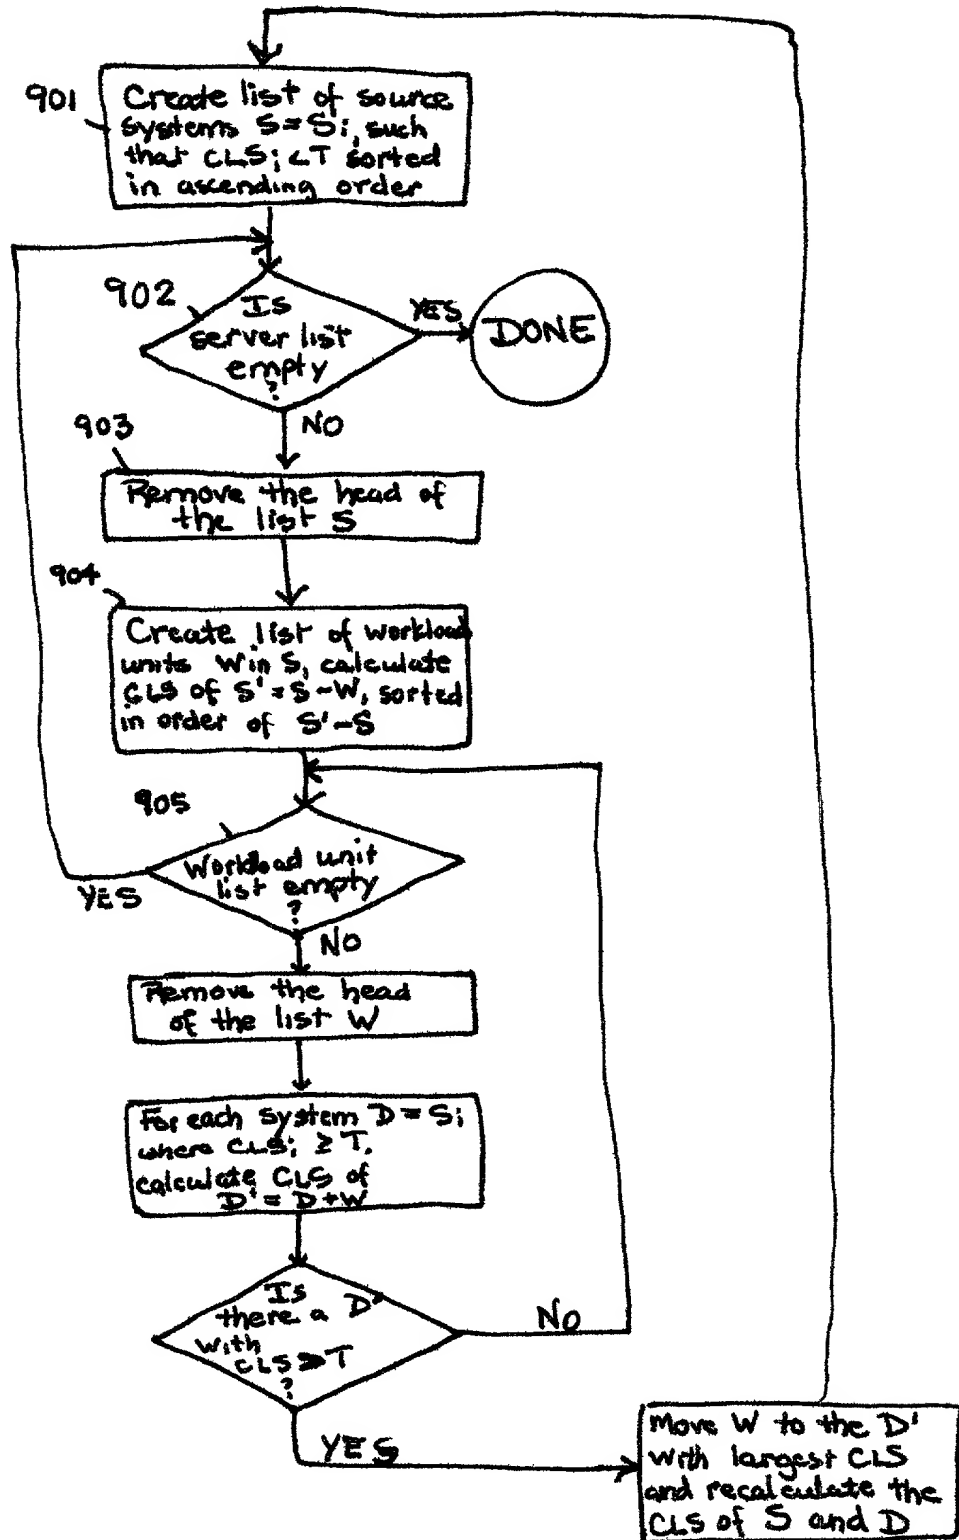 901
Create list of source
systems S=Si, such
that CLSi<T sorted
in ascending order
902
Is
server list
empty
?
YES
DONE
NO
903
Remove the head of
the list S
904
Create list of workload
units W in S, calculate
CLS of S'=S-W, sorted
in order of S'-S
905
Workload unit
list empty
?
YES
NO
Remove the head
of the list W
For each system D=Si
where CLSi ≥ T,
calculate CLS of
D'=D+W
Is
there a D'
with
CLS ≥ T
?
NO
YES
Move W to the D'
with largest CLS
and recalculate the
CLS of S and D